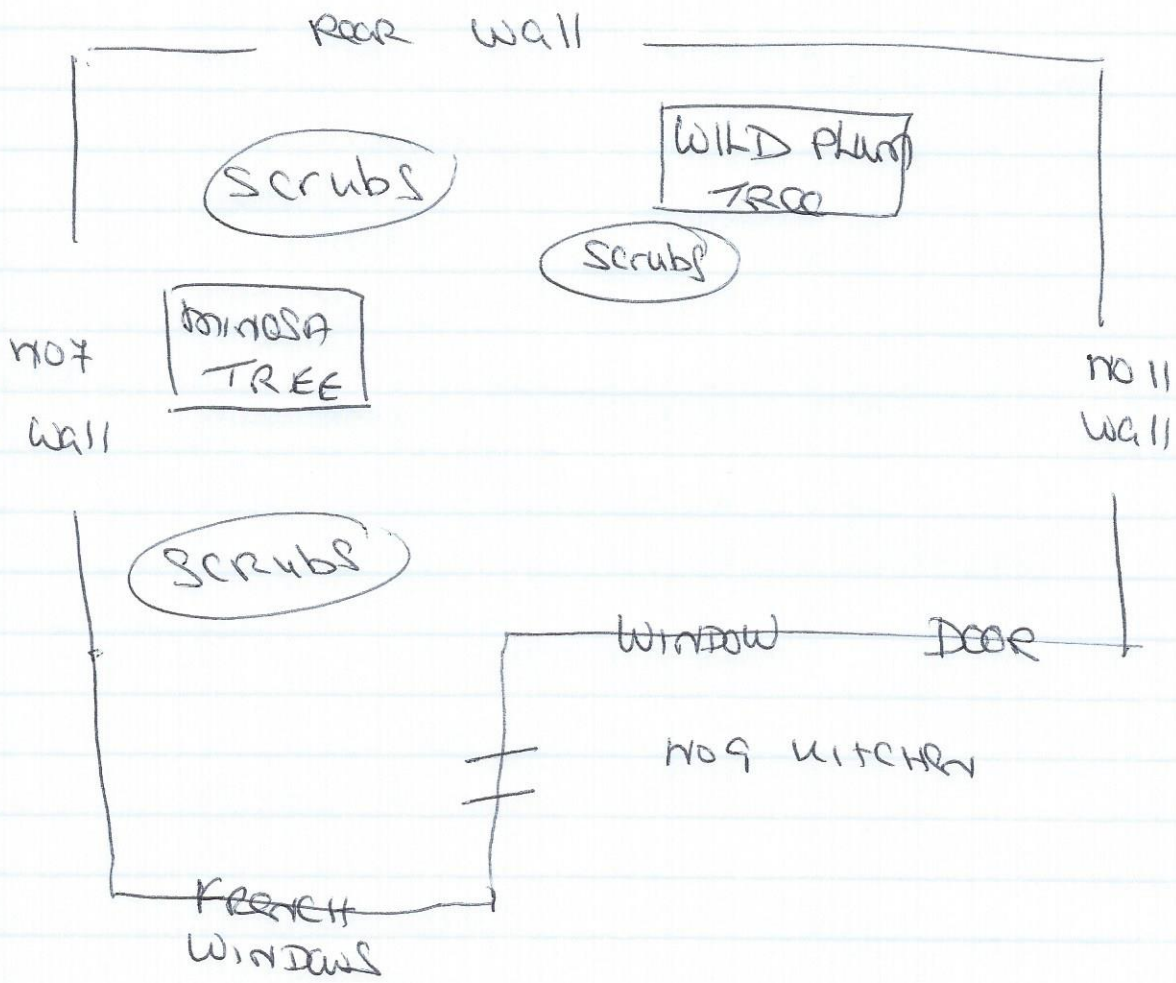 REAR WALL
Scrubs
WILD PLUM
TREE
Scrubs
MIMOSA
TREE
NO 7
Wall
NO 11
Wall
SCRUBS
WINDOW DOOR
NO 9 KITCHEN
FRENCH
WINDOWS